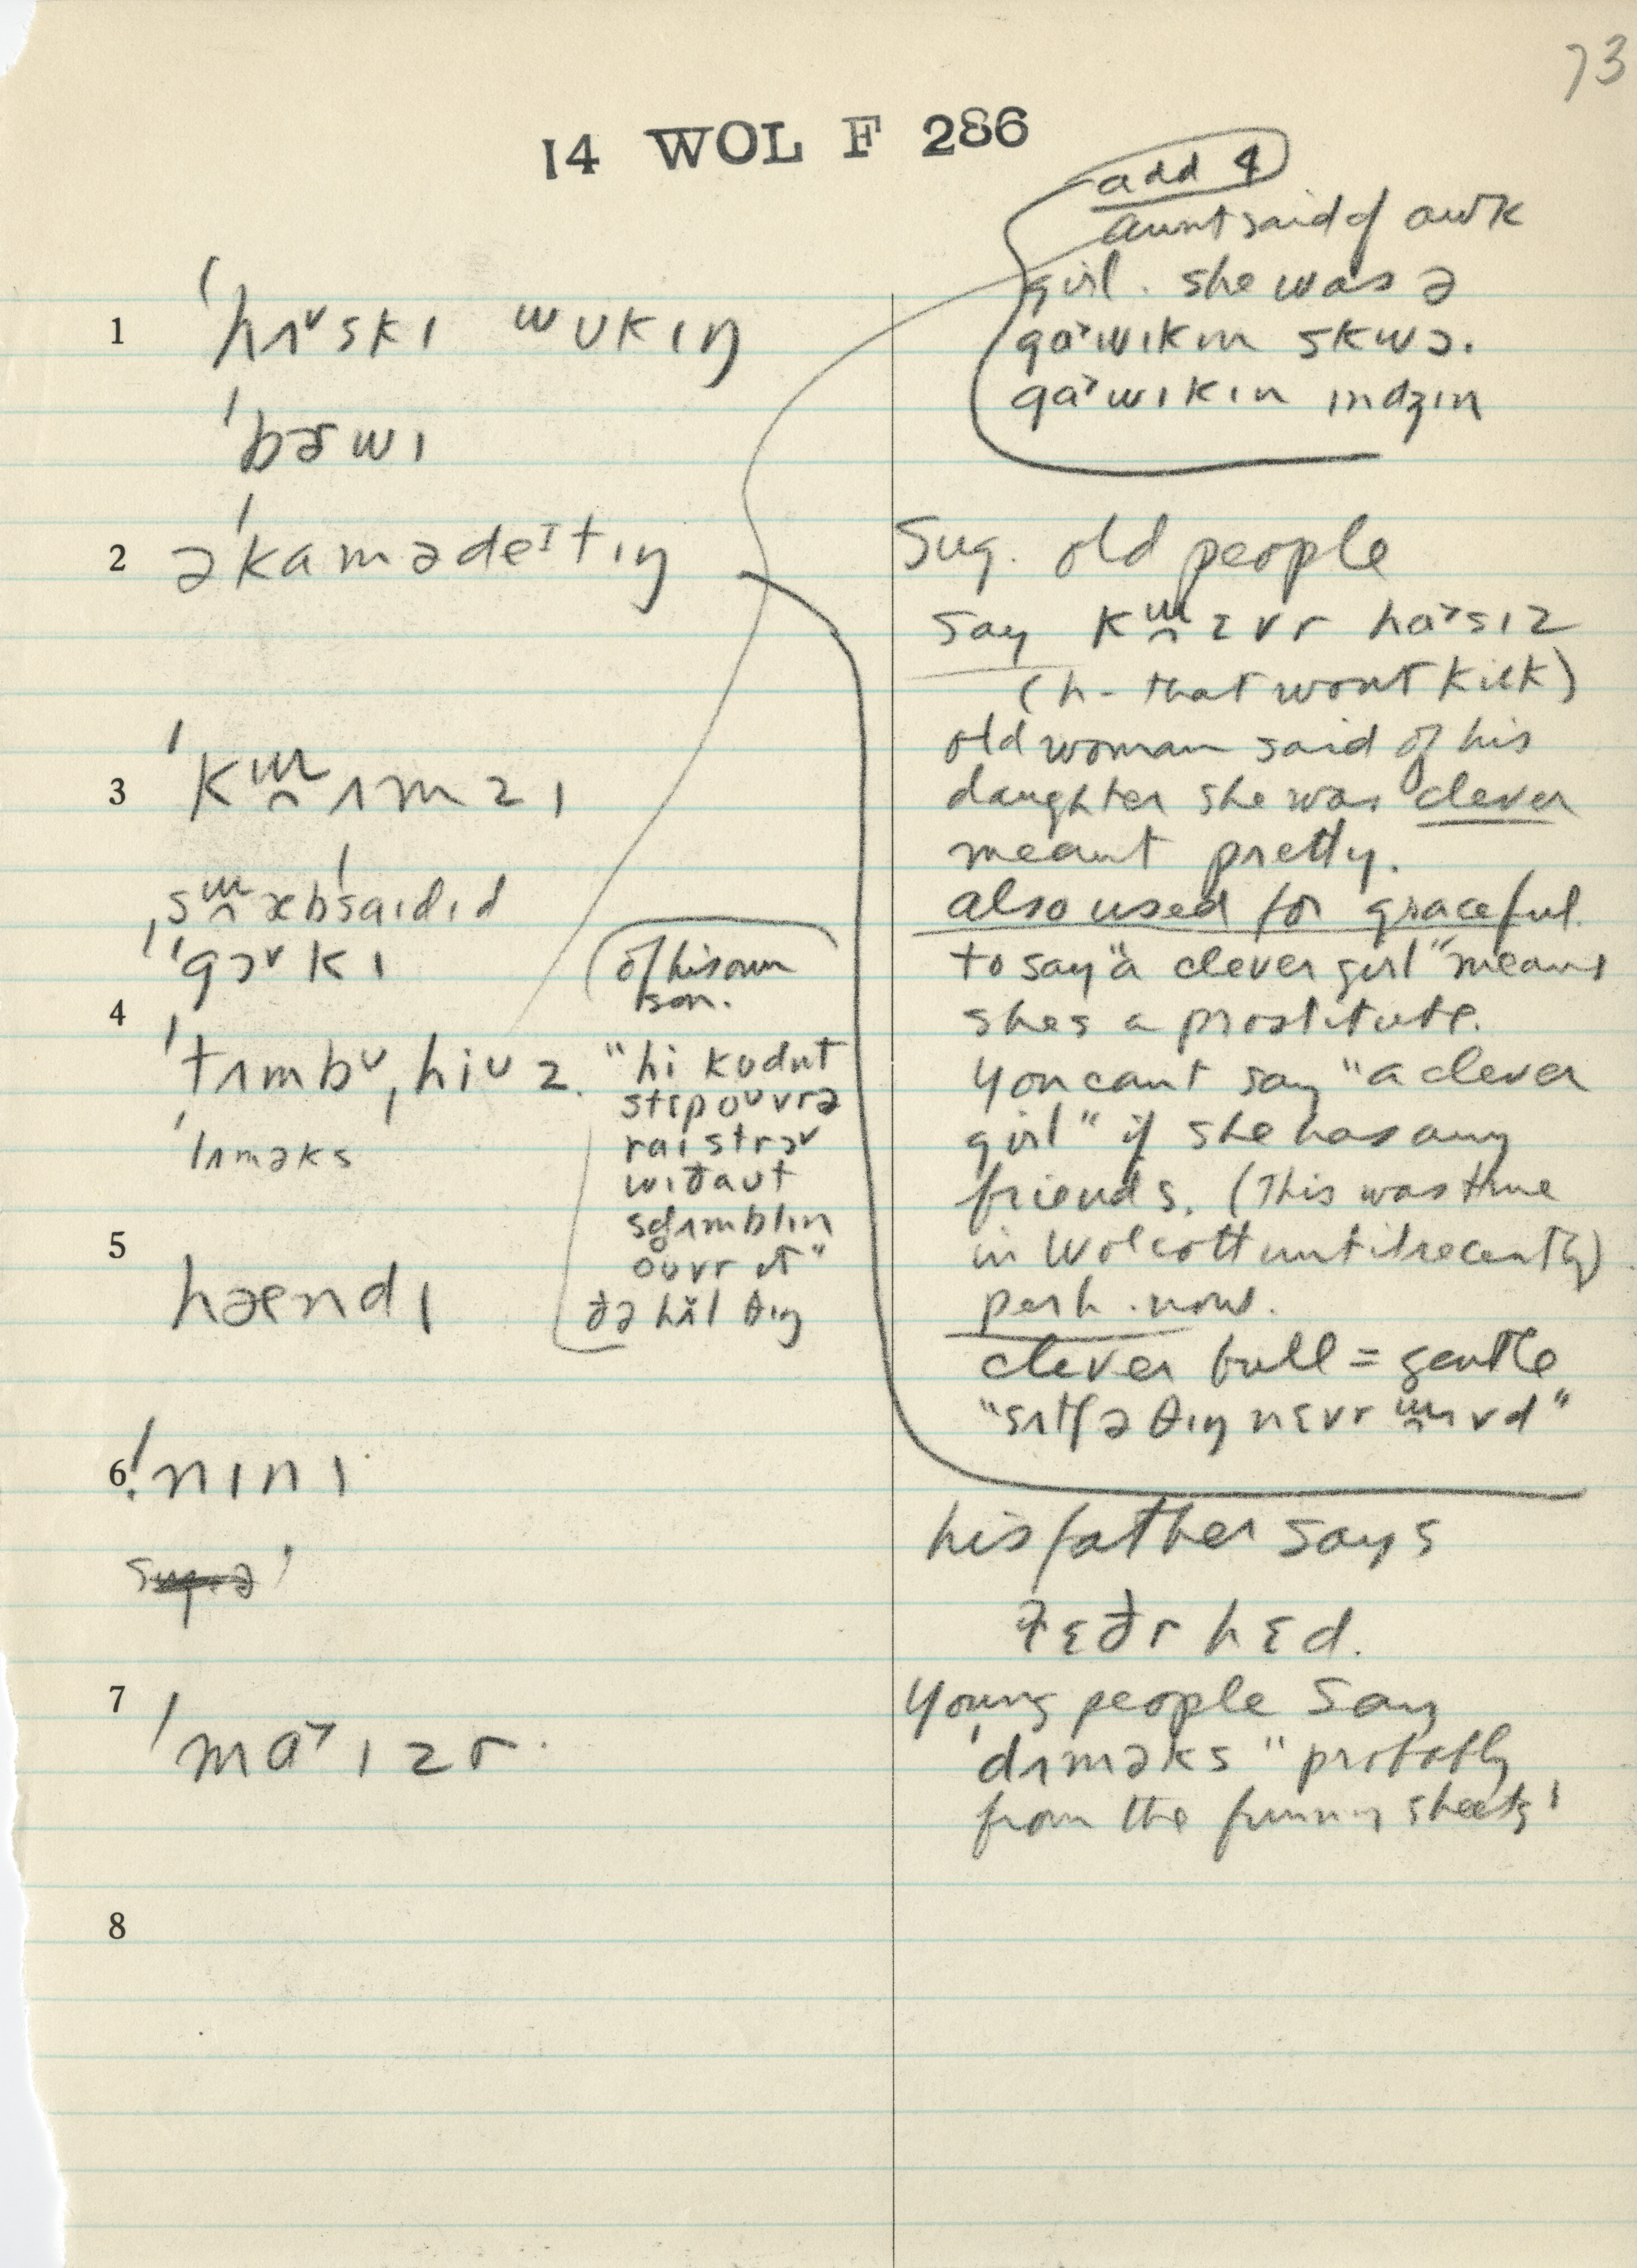 73
14 WOL F 286
add 4
aunt said of awk
girl. she was ə
gɑ˃wɪkɪn skwɔ.
gɑ˃wɪkɪn ɪndʒɪn
1 ˈhʌˠskɪ wʊkɪŋ
ˈbɔwɪ
2 əˈkɑmədeᴵtɪŋ
Sug. old people
say k ɛvr hɑ˃sɪz
(h - that wont kick)
old woman said of his
daughter she was clever
meant pretty.
also used for graceful.
to say "a clever girl" means
shes a prostitute.
You cant say "a clever
girl" if she has any
friends. (This was true
in Wolcott until recently)
perh. now.
clever bull = gentle
3 ˈk ʌmzɪ
ˈgɔˠkɪ
4
ˈtʌmbᶷˌhiᶷz.
ˈlʌməks
of his own
son.
"hi kʊdnt
stɛp oᶷvrə
rai strɔˠ
wɪðaʊt
oᶷvr ɪt"
ðə hɪ̆l θɪŋ
5 hændɪ
6 ˈnɪnɪ
his father says
fɛðr hɛd.
7 ˈmɑ˃ɪzr
Young people say
ˈdʌməks" probably
from the funny sheets!
8